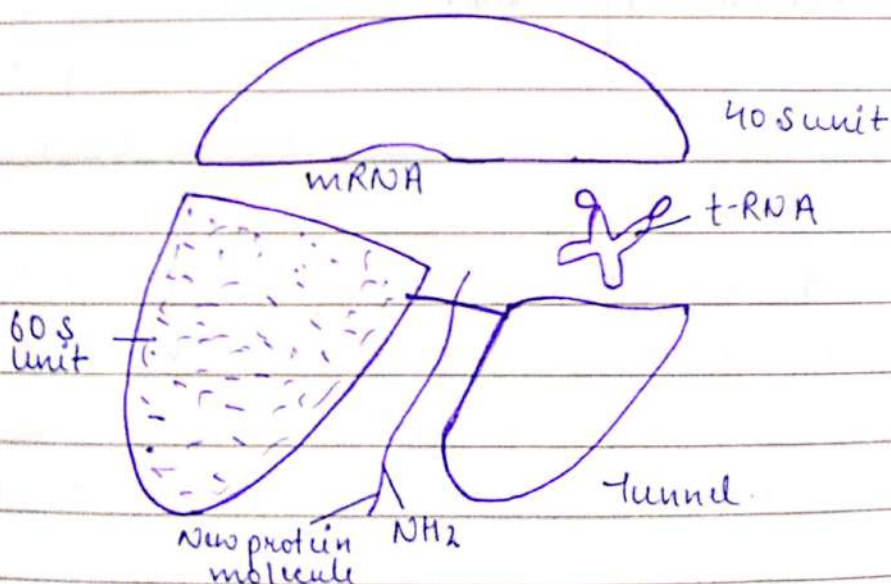 40 S unit
mRNA
t-RNA
60 S
unit
Tunnel.
New protein
molecule
NH2